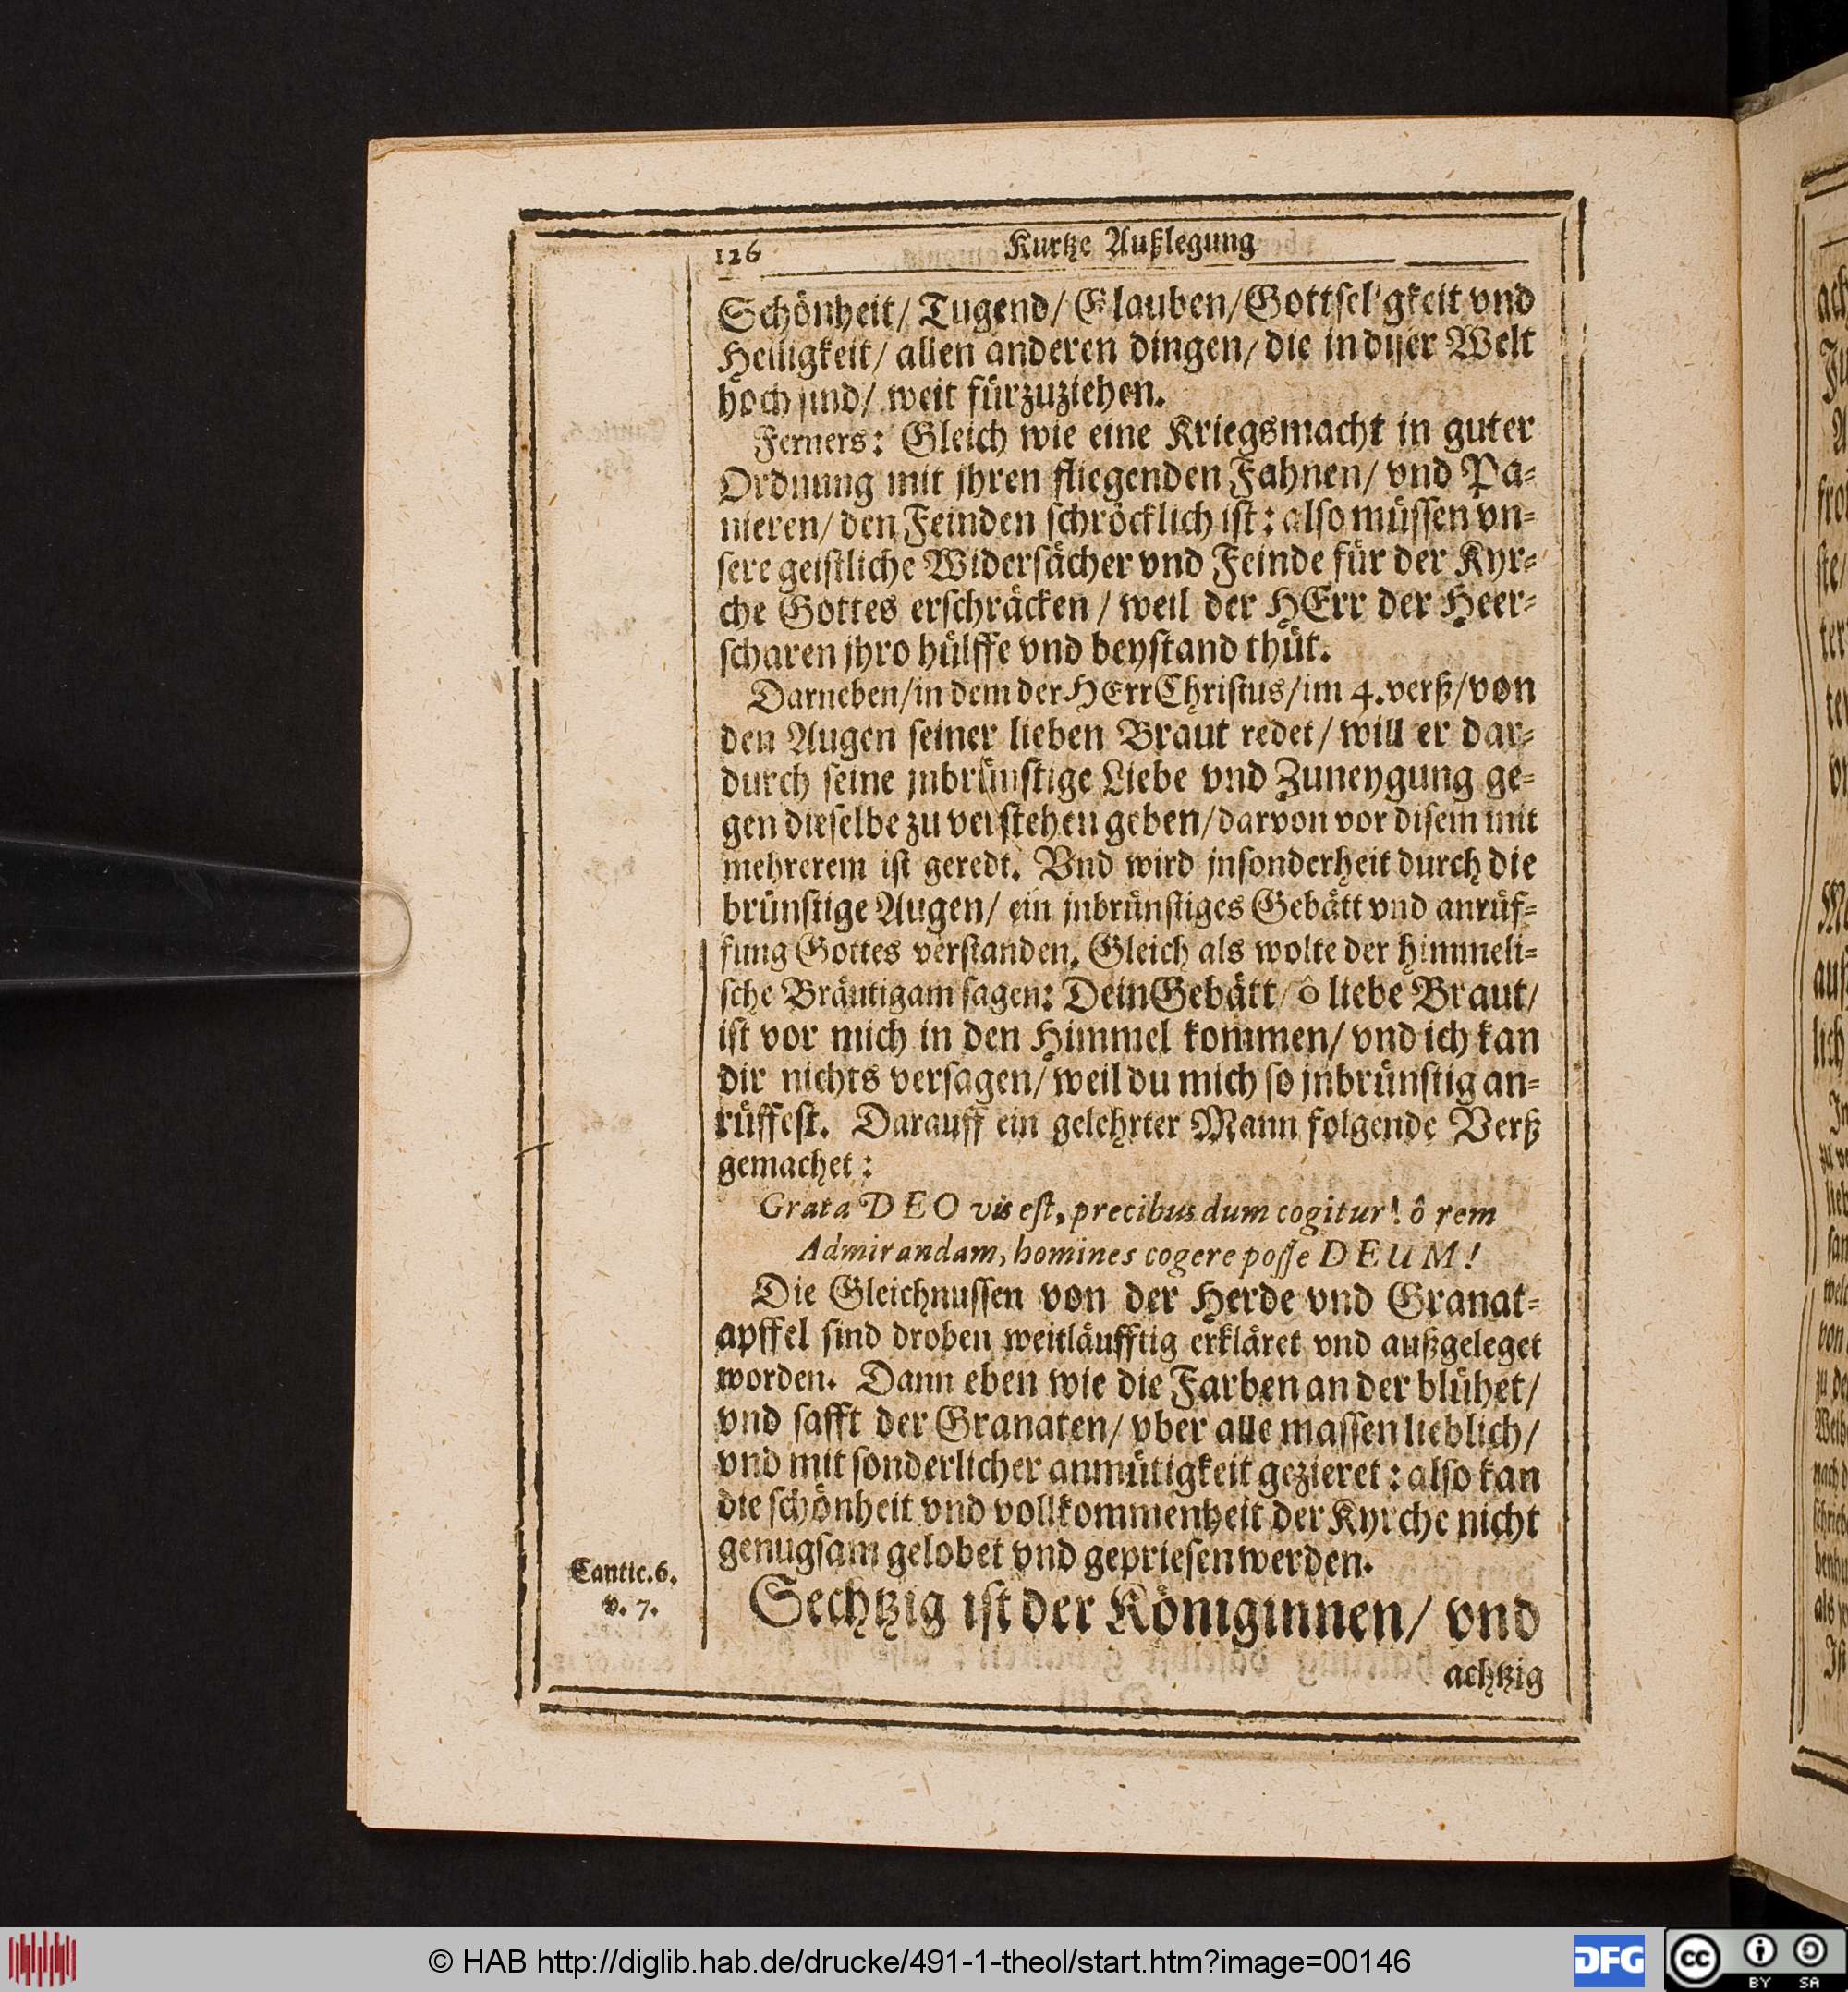 126 Kurtze Außlegung
Schönheit/ Tugend/ Glauben/ Gottsel'gkeit vnd
Heiligkeit/ allen anderen dingen/ die in diser Welt
hoch sind/ weit fürzuziehen.
Ferners: Gleich wie eine Kriegsmacht in guter
Ordnung mit jhren fliegenden Fahnen/ vnd Pa-
nieren/ den Feinden schröcklich ist: also müssen vn-
sere geistliche Widersächer vnd Feinde für der Kyr-
che Gottes erschräcken / weil der HErr der Heer-
scharen jhro hülffe vnd beystand thüt.
Darneben/ in dem der HErr Christus/ im 4. verß/ von
den Augen seiner lieben Braut redet/ will er dar-
durch seine jnbrünstige Liebe vnd Zuneygung ge-
gen dieselbe zu verstehen geben/ darvon vor disem mit
mehrerem ist geredt. Vnd wird jnsonderheit durch die
brünstige Augen/ ein jnbrünstiges Gebätt vnd anrüf-
fung Gottes verstanden. Gleich als wolte der himmeli-
sche Bräutigam sagen: Dein Gebätt/ ô liebe Braut/
ist vor mich in den Himmel kommen/ vnd ich kan
dir nichts versagen/ weil du mich so jnbrünstig an-
rüffest. Darauff ein gelehrter Mann folgende Verß
gemachet:
Grata DEO vis est, precibus dum cogitur! ô rem
Admirandam, homines cogere posse DEUM!
Die Gleichnussen von der Herde vnd Granat-
apffel sind droben weitläufftig erkläret vnd außgeleget
worden. Dann eben wie die Farben an der blühet/
vnd safft der Granaten/ vber alle massen lieblich/
vnd mit sonderlicher anmütigkeit gezieret: also kan
die schönheit vnd vollkommenheit der Kyrche nicht
genugsam gelobet vnd gepriesen werden.
Cantic. 6.
v. 7.
Sechtzig ist der Königinnen/ vnd
achtzig
© HAB http://diglib.hab.de/drucke/491-1-theol/start.htm?image=00146
DFG
cc
BY SA